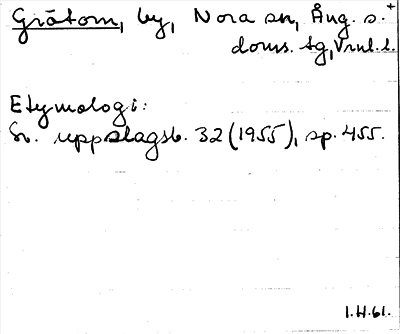 Gråtom, by, Nora sn, Ång. s.+
doms. tg, Vrnl. l.
Etymologi:
Sv. uppslagsb. 32 (1955), sp. 455.
1.H.61.